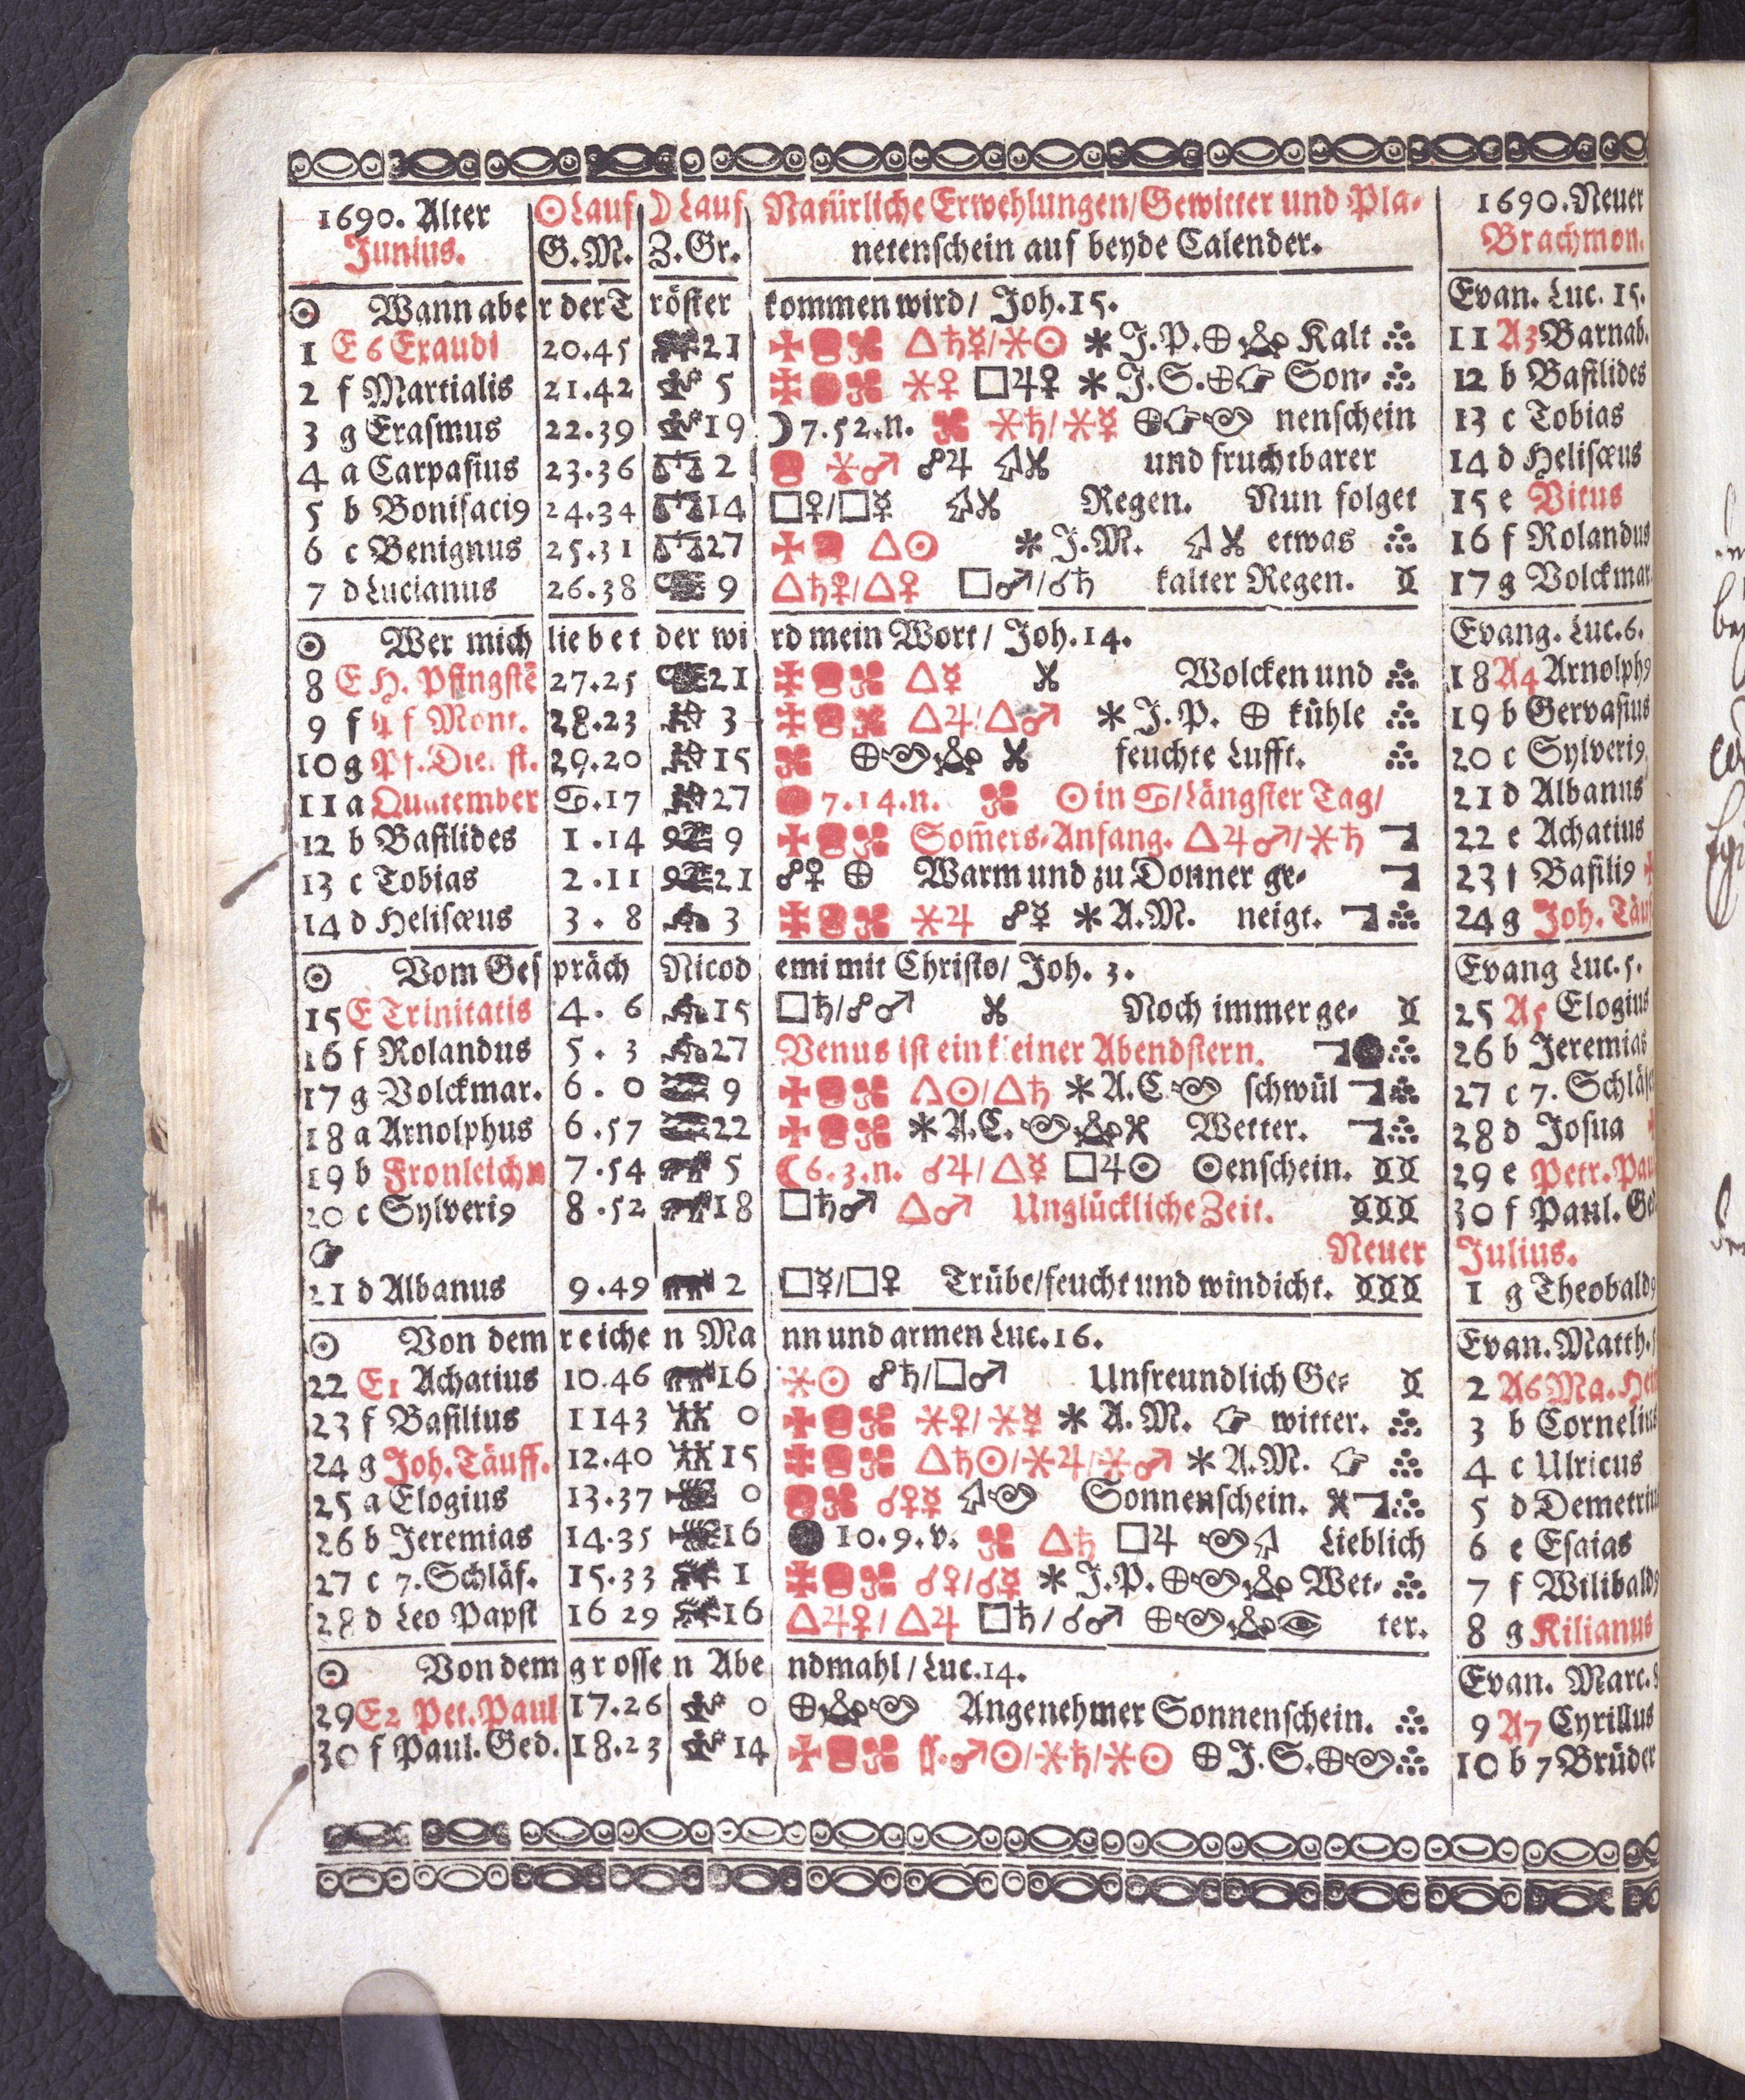 1690. Alter ☉ Lauf ☽ Lauf Natürliche Erwehlungen/Gewitter und Pla- 1690. Neuer
Junius. G.M. Z.Gr. netenschein auf beyde Calender. Brachmon.
☉ Wann aber der Tröster kommen wird/ Joh.15. Evan. Luc. 15.
1 E 6 Exaudi 20.45 21 △♄☿/⚹☉ * J.P.⊕ Kalt 11 A3 Barnab.
2 f Martialis 21.42 5 ⚹♀ □♃♀ * J.S.⊕☞ Son- 12 b Basilides
3 g Erasmus 22.39 19 ☽7.52.n. ⚹♄/⚹☿ ⊕☞ nenschein 13 c Tobias
4 a Carpasius 23.36 2 ⚹♂ ☍♃ und fruchtbarer 14 d Helisæus
5 b Bonifaci9 24.34 14 □♀/□☿ Regen. Nun folget 15 e Vitus
6 c Benignus 25.31 27 △☉ * J.M. etwas 16 f Rolandus
7 d Lucianus 26.38 9 △♄♀/△♀ □♂/☌♄ kalter Regen. 17 g Volckmar.
☉ Wer mich liebet der wird mein Wort/ Joh.14. Evang. Luc.6.
8 E H. Pfingstē 27.25 21 △☿ Wolcken und 18 A4 Arnolph9
9 f Pf Mont. 28.23 3 △♃/△♂ * J.P. ⊕ kühle 19 b Gervasius
10 g Pf. Die. st. 29.20 15 ⊕ feuchte Lufft. 20 c Sylveri9
11 a Quatember ♋.17 27 7.14.n. ☉ in ♋/Längster Tag/ 21 d Albanus
12 b Basilides 1.14 9 Som̄ers-Anfang. △♃♂/⚹♄ 22 e Achatius
13 c Tobias 2.11 21 ☍♀ ⊕ Warm und zu Donner ge- 23 f Basili9
14 d Helisæus 3.8 3 ⚹♃ ☍☿ * A.M. neigt. 24 g Joh. Täuf
☉ Vom Gespräch Nicodemi mit Christo/ Joh. 3. Evang Luc.5.
15 E Trinitatis 4.6 15 □♄/☍♂ Noch immer ge- 25 A5 Elogius
16 f Rolandus 5.3 27 Venus ist ein kleiner Abendstern. 26 b Jeremias
17 g Volckmar. 6.0 9 △☉/△♄ * A.C. schwül 27 c 7. Schläf
18 a Arnolphus 6.57 22 * A.C. Wetter. 28 d Josua
19 b Fronleichn 7.54 5 ☾6.3.n. ☌♃/△☿ □♃☉ ☉enschein. 29 e Petr. Pau
20 c Sylveri9 8.52 18 □♄♂ △♂ Unglückliche Zeit. 30 f Paul. Ged
☞ Neuer Julius.
21 d Albanus 9.49 2 □☿/□♀ Trübe/feucht und windicht. 1 g Theobald9
☉ Von dem reichen Mann und armen Luc.16. Evan. Matth.
22 E1 Achatius 10.46 16 ⚹☉ ☍♄/□♂ Unfreundlich Ge- 2 A6 Ma. Hei
23 f Basilius 1143 0 ⚹♀/⚹☿ * A.M. ☞ witter. 3 b Cornelius
24 g Joh. Täuff. 12.40 15 △♄☉/⚹♃/⚹♂ * A.M. ☞ 4 c Ulricus
25 a Elogius 13.37 0 ☌♀☿ Sonnenschein. 5 d Demetriu
26 b Jeremias 14.35 16 10.9.v. △♄ □♃ Lieblich 6 e Esaias
27 c 7. Schläf. 15.33 1 ☌♀/☌☿ * J.P.⊕ Wet- 7 f Wilibald9
28 d Leo Papst 16 29 16 △♃♀/△♃ □♄/☌♂ ⊕ ter. 8 g Kilianus
☉ Von dem grossen Abendmahl/Luc.14. Evan. Marc.8
29 E2 Pet. Paul 17.26 0 ⊕ Angenehmer Sonnenschein. 9 A7 Cyrillus
30 f Paul. Ged. 18.23 14 ♂☉/⚹♄/⚹☉ ⊕ J.S.⊕ 10 b 7 Brüder